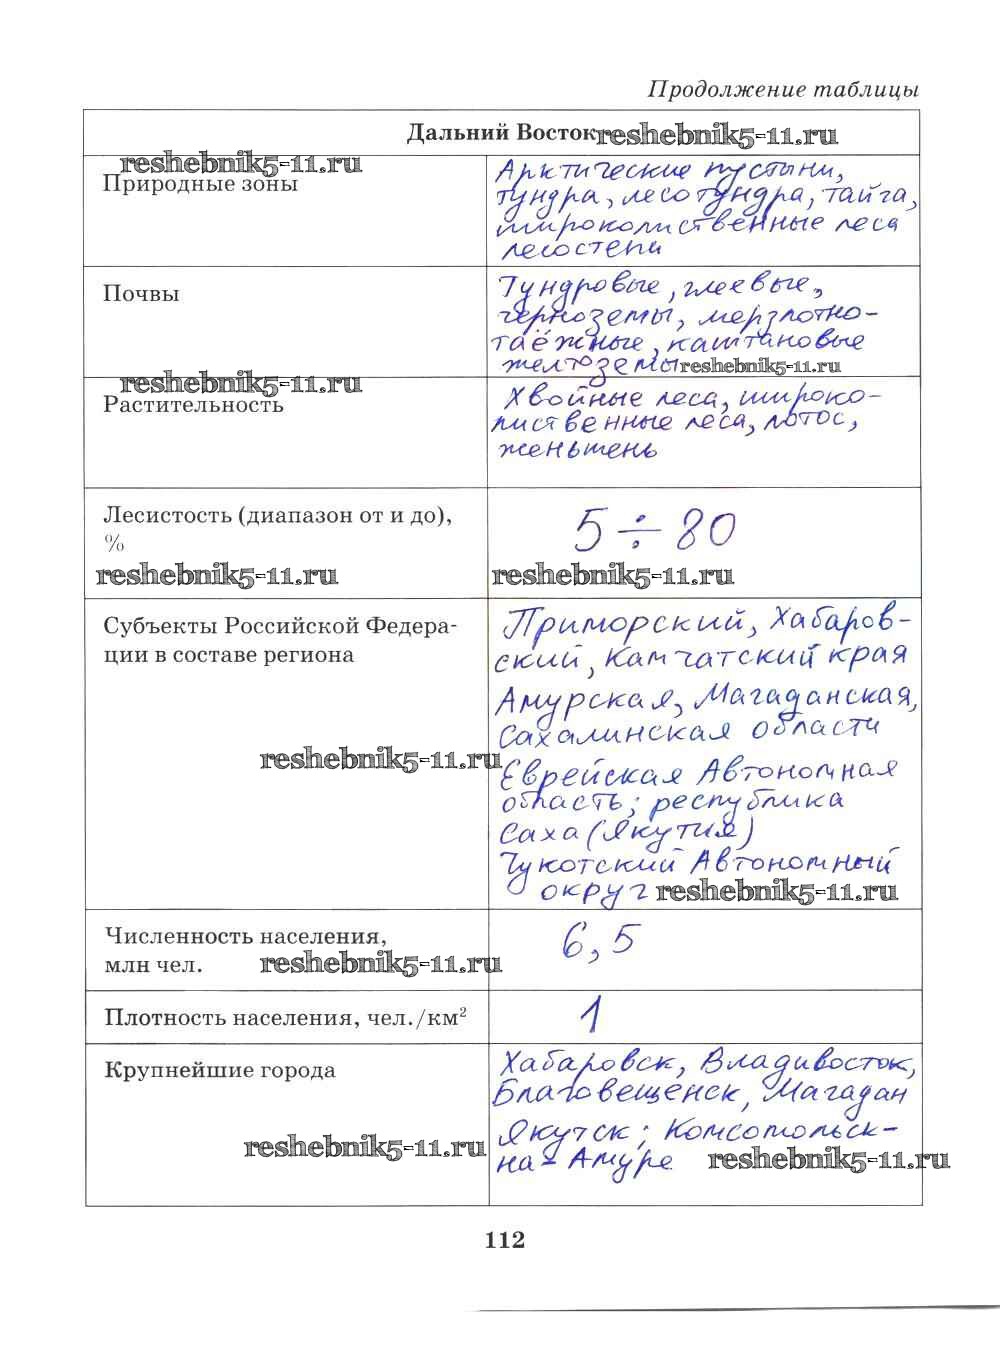 Продолжение таблицы
Дальний Восток reshebnik5-11.ru
reshebnik5-11.ru
Природные зоны
Арктические пустыни,
тундра, лесотундра, тайга,
широколиственные леса
лесостепи
Почвы
Тундровые, глеевые,
чернозёмы, мерзлотно-
таёжные, каштановые
желтоземы reshebnik5-11.ru
reshebnik5-11.ru
Растительность
Хвойные леса, широко-
лиственные леса, лотос,
женьшень
Лесистость (диапазон от и до),
%
5 ÷ 80
reshebnik5-11.ru
reshebnik5-11.ru
Субъекты Российской Федера-
ции в составе региона
Приморский, Хабаров-
ский, Камчатский края
Амурская, Магаданская,
Сахалинская области
reshebnik5-11.ru
Еврейская Автономная
область; республика
Саха (Якутия)
Чукотский Автономный
округ reshebnik5-11.ru
Численность населения,
млн чел. reshebnik5-11.ru
6,5
Плотность населения, чел./км²
1
Крупнейшие города
Хабаровск, Владивосток,
Благовещенск, Магадан
Якутск; Комсомольск-
на-Амуре reshebnik5-11.ru
reshebnik5-11.ru
112